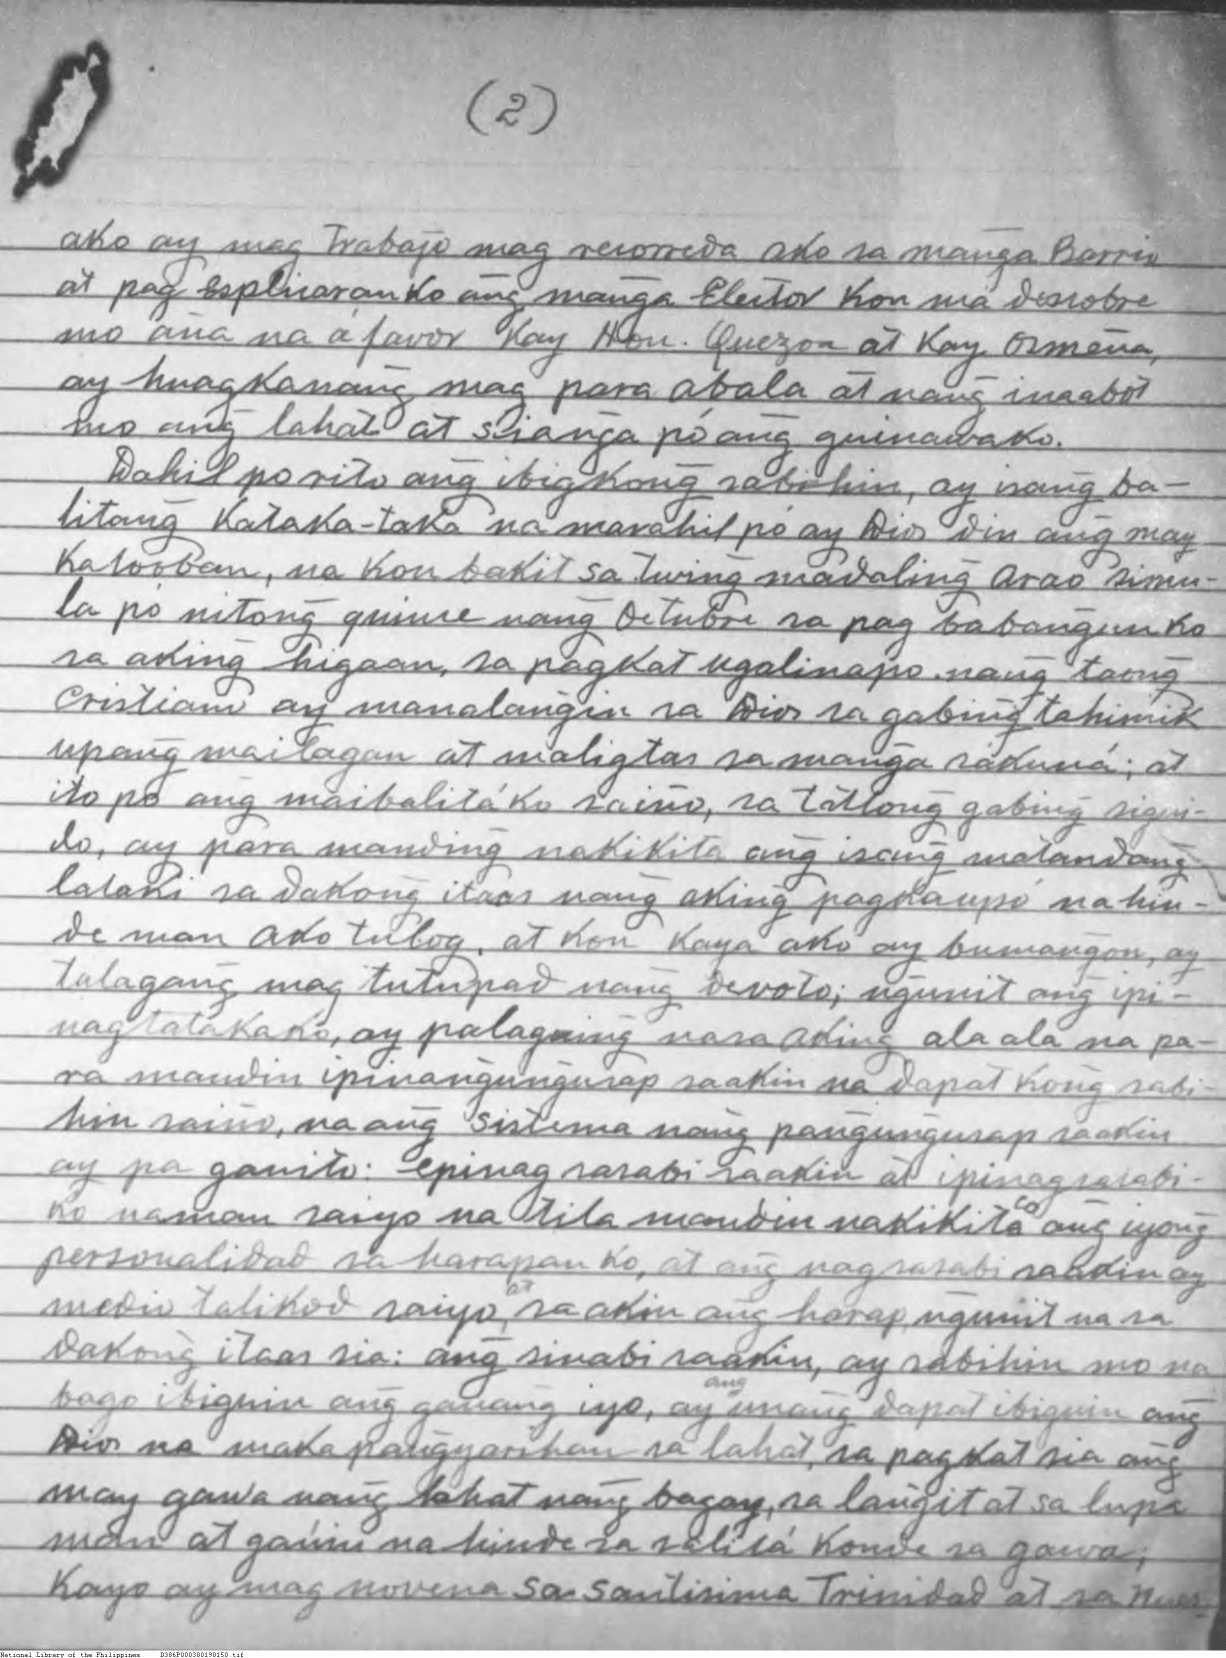 (2)
ako ay mag trabajo mag recorreda ako sa manga Barrio
at pag esplicaran ko ang manga Elector kon ma descobre
mo aña na á favor Kay Hon. Quezon at Kay Osmeña,
ay huag kanang mag para abala at nang inaabot
mo ang lahat at siánga pó ang guinawako.
Dahil po rito ang ibig kong sabihin, ay isang ba-
litang kataka-taka na marahil pó ay Dios din ang may
kalooban, na kon bakit sa tuing madaling arao simu-
la pó nitong quince nang Octubre sa pag babangun ko
sa aking higaan, sa pagkat ugalinapo nang taong
cristiano ay manalangin sa Dios sa gabing tahimik
upang mailagan at maligtas sa manga sakuná; at
ito po ang maibalitá ko saiño, sa tatlong gabing sigui-
do, ay para manding nakikita ang isang matandang
lalaki sa dakong itaas nang aking pagkaupó na hin-
de man ako tulog, at kon kaya ako ay bumangon, ay
talagang mag tutupad nang devoto; ngunit ang ipi-
nagtataka ko, ay palaguing nasa aking ala ala na pa-
ra mandin ipinangungusap saakin na dapat kong sabi-
hin saiño, na ang sistema nang pangungusap saakin
ay pa ganito: epinag sasabi saakin at ipinagsasabi-
ko naman saiyo na tila mandin nakikita co ang iyong
personalidad sa harapan ko, at ang nag sasabi saakin ay
medio talikod saiyo, at sa akin ang harap ngunit na sa
dakong itaas sia: ang sinabi saakin, ay sabihin mo na
bago ibiguin ang ganang iyo, ay ang unang dapat ibiguin ang
Dios na maka pangyarihan sa lahat, sa pagkat sia ang
may gawa nang lahat nang bagay, sa langit at sa lupa
man at gawin na hinde sa salitá konde sa gawa;
Kayo ay mag novena sa Santisima Trinidad at sa Nues-